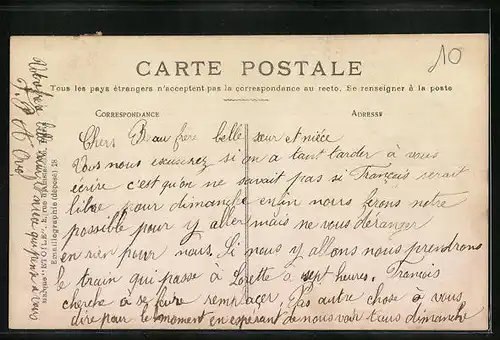 10
CARTE POSTALE
Tous les pays étrangers n'acceptent pas la correspondance au recto. Se renseigner à la poste
CORRESPONDANCE
ADRESSE
Chers Beau frère belle sœur et nièce
Vous nous excuserez si on a tant tarder à vous
écrire c'est qu'on ne savait pas si Français serait
libre pour dimanche enfin nous ferons notre
possible pour y aller mais ne vous déranger
en rien pour nous. Si nous y allons nous prendrons
le train qui passe à Lorette à sept heures. Francais
cherche à se faire remplacer. Pas autre chose à vous
dire pour le moment en espérant de nous voir tous dimanche
Emaillographie (déposé) 28
qui pense à vous